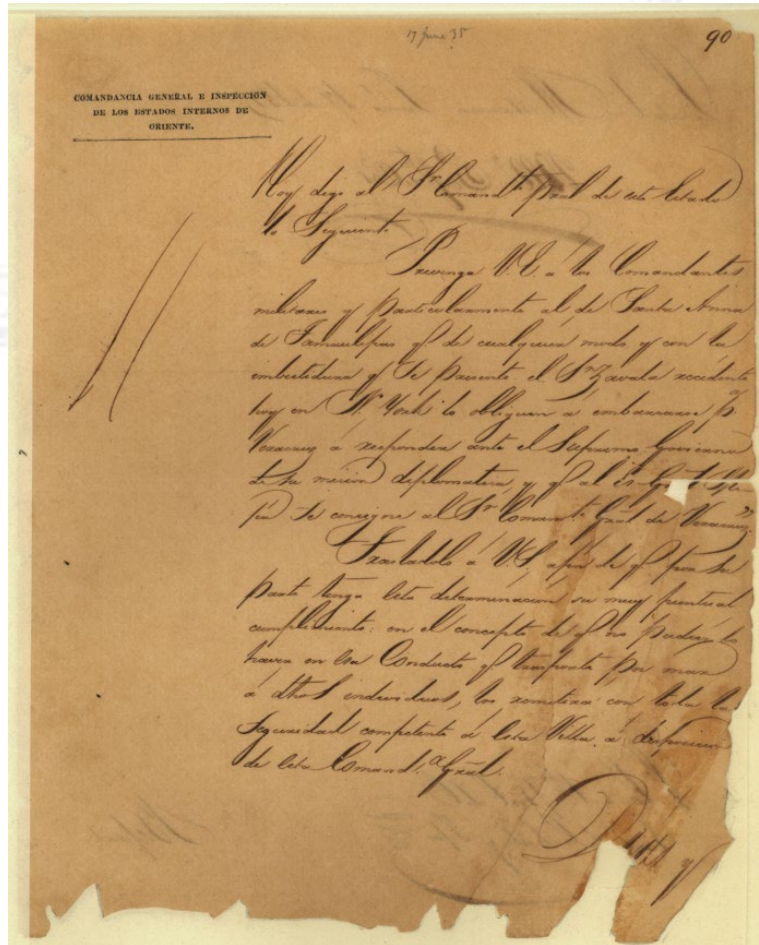 17 June 35
90
COMANDANCIA GENERAL E INSPECCIÓN
DE LOS ESTADOS INTERNOS DE
ORIENTE.
Hoy digo al Sr Comandte. pral de este Estado
lo Siguiente
Prevenga V.E. a los Comandantes
militares y particularmente al de Santa Anna
de Tamaulipas q. de cualquier modo y con la
embestidura q. se presente el Sr. Zavala
hoy en N. York lo obliguen á embarcarse p.
Veracruz á responder ante el Supremo
de su micion diplomatica, y q. al
se consigne al Sr Comante. Gral de Veracruz.
Trasladolo á V.S. afin de q. por su
parte tenga esta determinacion su muy puntual
cumplimiento: en el concepto de q. no
haver en esa Conducto q. trasporte por mar
á dhos individuos, los remitira con toda la
Seguridad competente á esta Villa á disposicion
de esta Comanda. Gral.